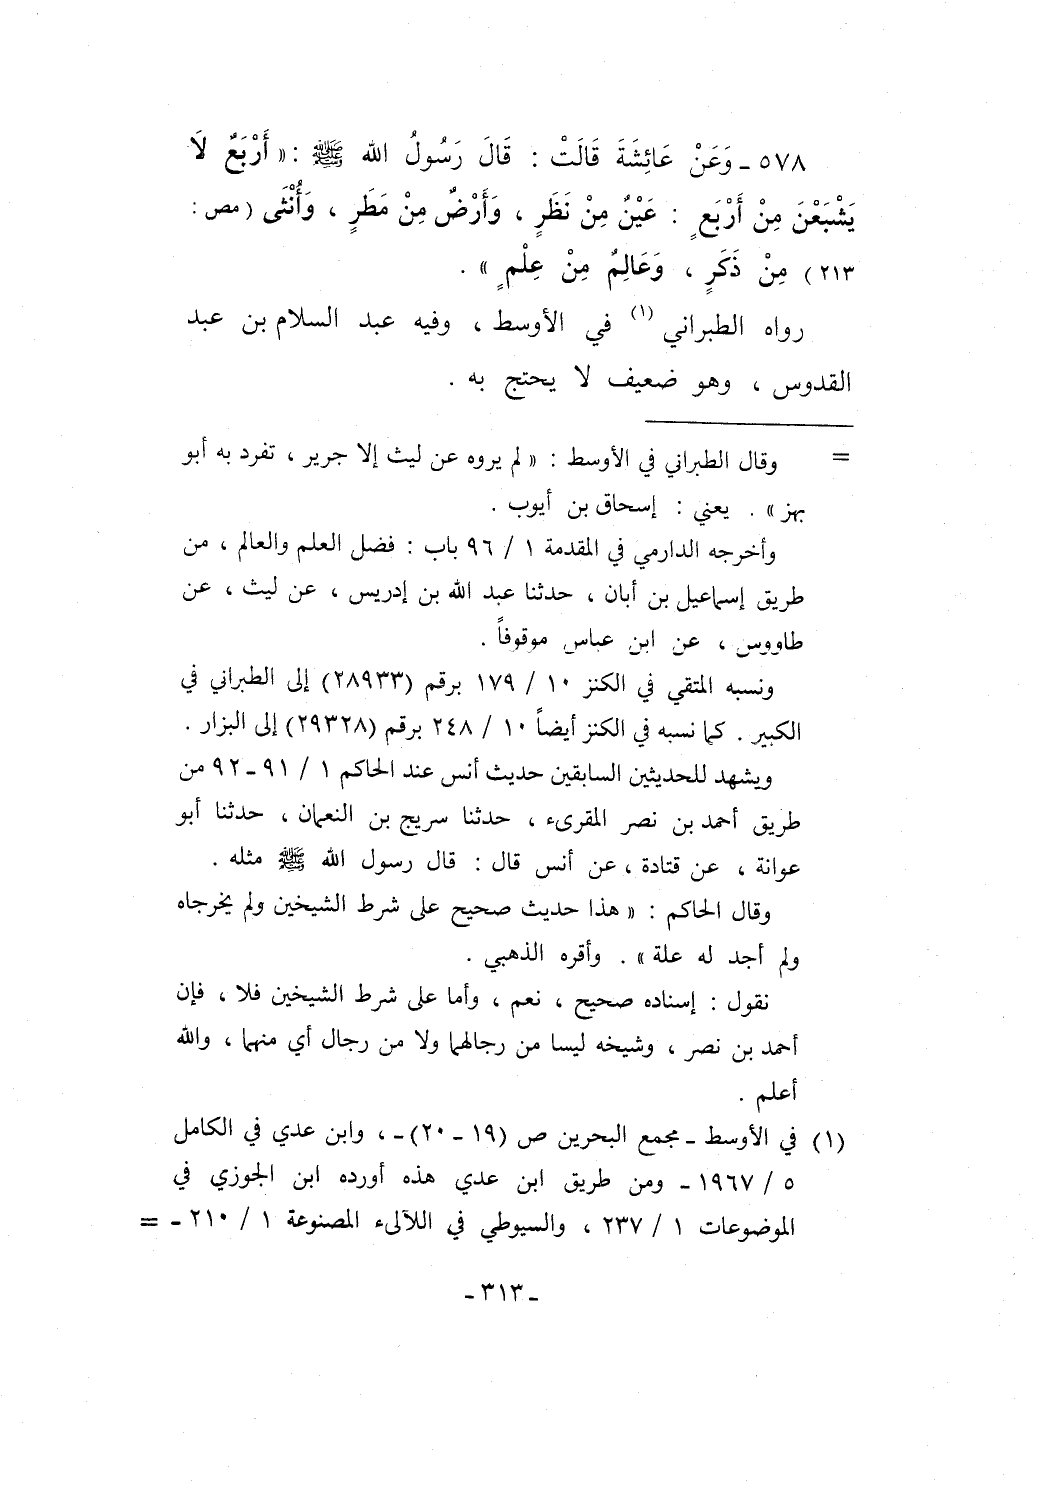 ٥٧٨ ـ وَعَنْ عَائِشَةَ قَالَتْ : قَالَ رَسُولُ الله ﷺ : « أَرْبَعٌ لَا
يَشْبَعْنَ مِنْ أَرْبَعٍ : عَيْنٌ مِنْ نَظَرٍ ، وَأَرْضٌ مِنْ مَطَرٍ ، وَأُنْثَى ( مص :
٢١٣ ) مِنْ ذَكَرٍ ، وَعَالِمٌ مِنْ عِلْمٍ » .
رواه الطبراني (١) في الأوسط ، وفيه عبد السلام بن عبد
القدوس ، وهو ضعيف لا يحتج به .
= وقال الطبراني في الأوسط : « لم يروه عن ليث إلا جرير ، تفرد به أبو
بهز » . يعني : إسحاق بن أيوب .
وأخرجه الدارمي في المقدمة ١ / ٩٦ باب : فضل العلم والعالم ، من
طريق إسماعيل بن أبان ، حدثنا عبد الله بن إدريس ، عن ليث ، عن
طاووس ، عن ابن عباس موقوفاً .
ونسبه المتقي في الكنز ١٠ / ١٧٩ برقم (٢٨٩٣٣) إلى الطبراني في
الكبير . كما نسبه في الكنز أيضاً ١٠ / ٢٤٨ برقم (٢٩٣٢٨) إلى البزار .
ويشهد للحديثين السابقين حديث أنس عند الحاكم ١ / ٩١ ـ ٩٢ من
طريق أحمد بن نصر المقرىء ، حدثنا سريج بن النعمان ، حدثنا أبو
عوانة ، عن قتادة ، عن أنس قال : قال رسول الله ﷺ مثله .
وقال الحاكم : « هذا حديث صحيح على شرط الشيخين ولم يخرجاه
ولم أجد له علة » . وأقره الذهبي .
نقول : إسناده صحيح ، نعم ، وأما على شرط الشيخين فلا ، فإن
أحمد بن نصر ، وشيخه ليسا من رجالهما ولا من رجال أي منهما ، والله
أعلم .
(١) في الأوسط ـ مجمع البحرين ص (١٩ ـ ٢٠) ـ ، وابن عدي في الكامل
٥ / ١٩٦٧ ـ ومن طريق ابن عدي هذه أورده ابن الجوزي في
الموضوعات ١ / ٢٣٧ ، والسيوطي في اللآلىء المصنوعة ١ / ٢١٠ ـ =
ـ ٣١٣ ـ